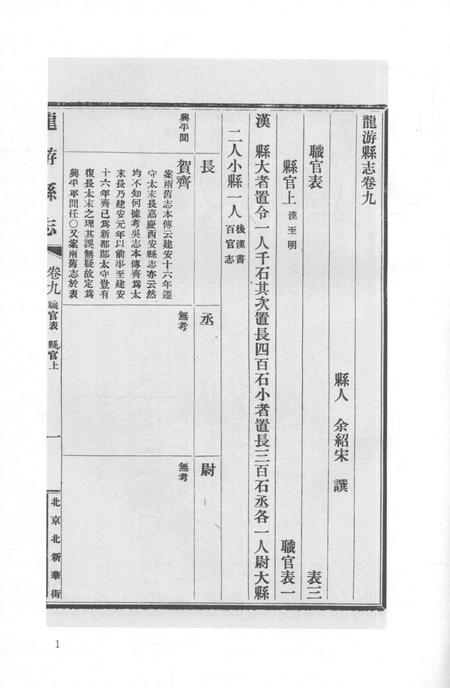 龍游縣志卷九
縣人　余紹宋　譔
職官表　表三
縣官上漢至明　職官表一
漢　縣大者置令一人千石其次置長四百石小者置長三百石丞各一人尉大縣
二人小縣一人後漢書
百官志
長　丞　尉
興平間
賀齊
案南舊志本傳云建安十六年遷
守太末長嘉慶西安縣志亦云然
均不知何據考吳志本傳齊為太
末長乃建安元年以前事至建安
十六年齊已為新都郡太守豈有
復長太末之理其誤無疑故定為
興平年間任〇又案南舊志於表
無考
無考
龍游縣志
卷九　職官表　縣官上
一
北京北新華街
1